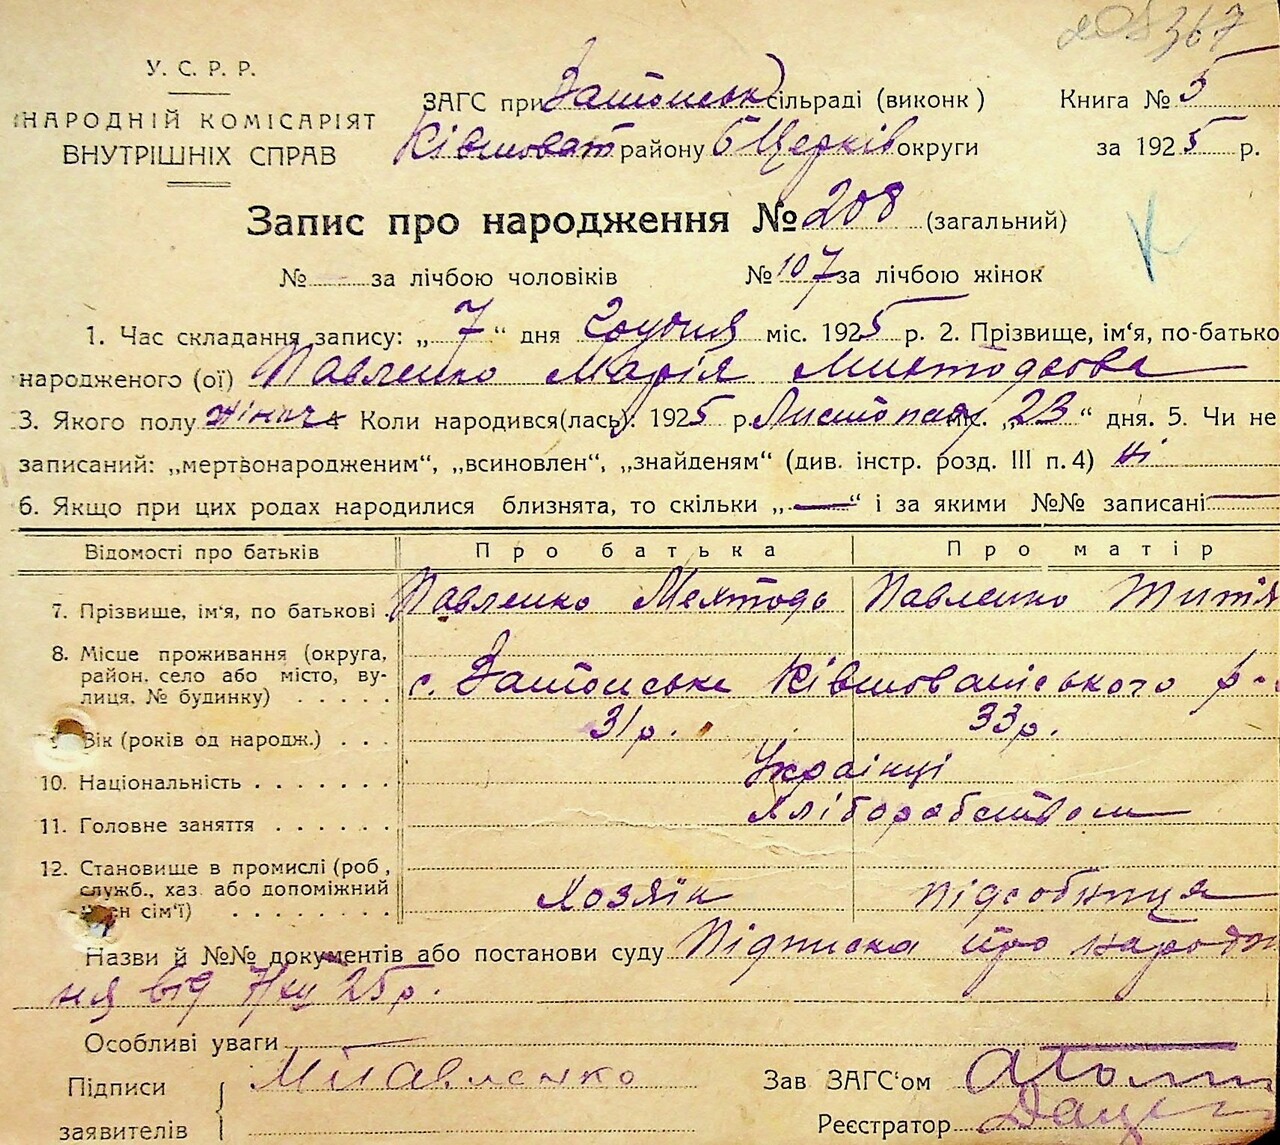 367
У. С. Р. Р.
НАРОДНІЙ КОМІСАРІЯТ
ВНУТРІШНІХ СПРАВ
ЗАГС при Затонськ сільраді (виконк)
Книга № 5
Ківшоват району Б Церків округи
за 1925 р.
Запис про народження № 208 (загальний)
№ — за лічбою чоловіків № 107 за лічбою жінок
1. Час складання запису: „7“ дня Грудня міс. 1925 р. 2. Прізвище, ім‘я, по-батько
народженого (ої) Павленко Марія Мифтодєова
3. Якого полу жіноч 4 Коли народився(лась): 1925 р. Листопад міс. „23“ дня. 5. Чи не
записаний: „мертвонародженим“, „всиновлен“, „знайденям“ (див. інстр. розд. III п. 4) Ні
6. Якщо при цих родах народилися близнята, то скільки „—“ і за якими №№ записані —
Відомості про батьків
Про батька
Про матір
7. Прізвище, ім‘я, по батькові
Павленко Мехтодь
Павленко Титія
8. Місце проживання (округа,
район. село або місто, ву-
лиця, № будинку) . . . . .
с. Затонське Ківшованіського р-
9. Вік (років од народж.) . . .
31 р.
33 р.
10. Національність . . . . . . .
Українці
11. Головне заняття . . . . . .
Хліборобством
12. Становище в промислі (роб,
служб., хаз або допоміжний
член сім‘ї) . . . . . . . .
Хозяїн
підсобниця
Назви й №№ документів або постанови суду Підписка про народжен
ня від 7/XII 25 р.
Особливі уваги
Підписи
заявителів
М Павленко
Зав ЗАГС‘ом
Реєстратор